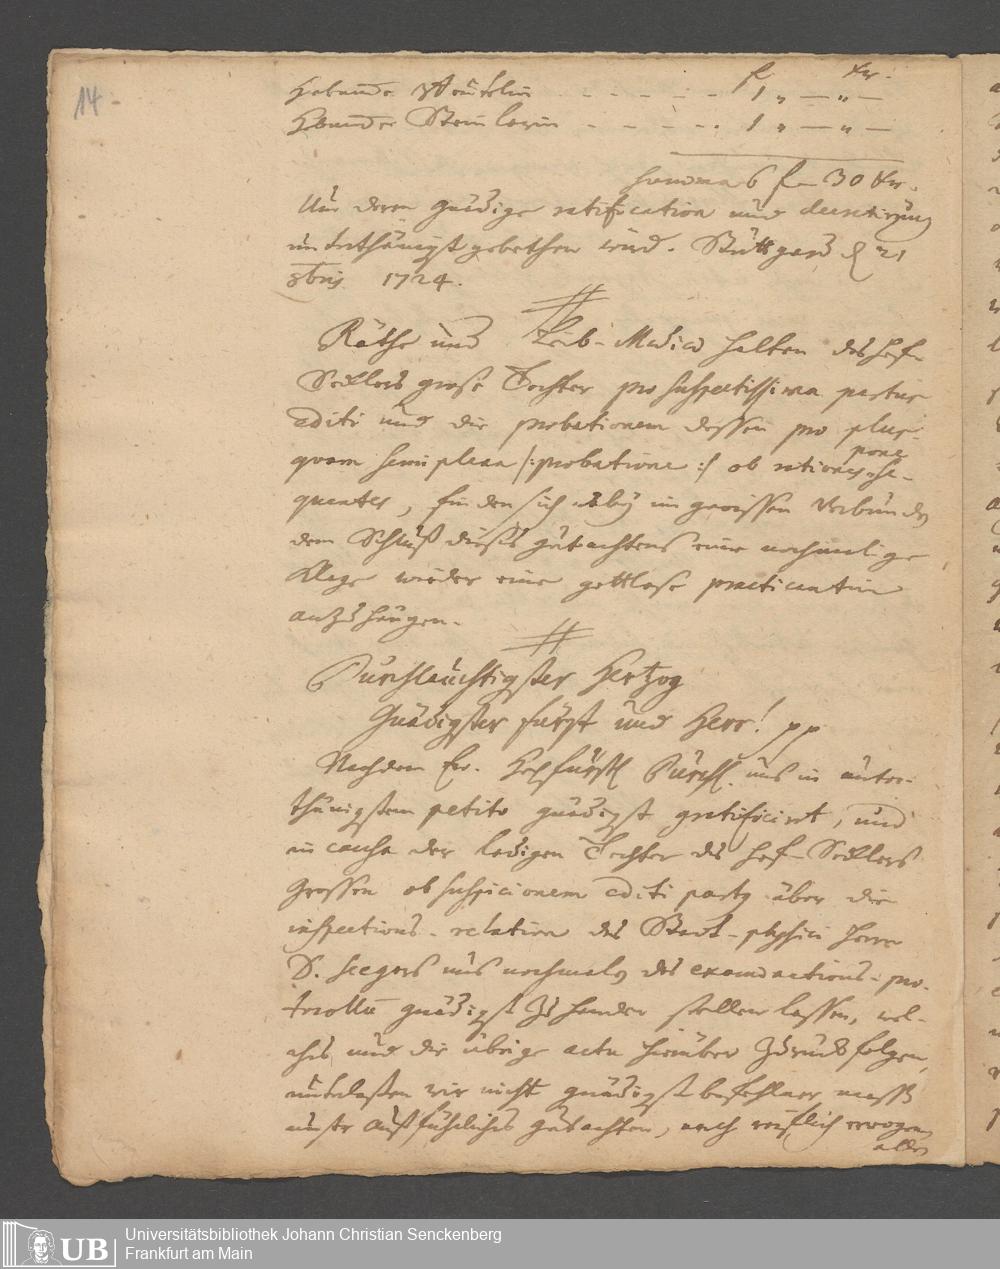 14.
f xr.
Hebamme Wentzelin - - - - - - 1 „ — „ —
Hebamme Steinlerin - - - - - 1 „ — „ —
Summa 6 f — 30 xr.
Um deren gnädige ratification und decretirung
unterthänigst gebethen wird. Stuttgard d 21
8bris 1724.
Räthe und Leib-Medici halten des Hof-
Sattlers große Tochter pro suspectissima partus
editi und die probationem dessen pro plus-
quam semiplena /: probatione :/ ob rationes se-
pone
quentes, finden sich dabey im gewissen verbunden
dem Schluß dieses gutachtens eine nochmalige
Klage wieder eine gottlose practicantin
anzuhängen.
Durchlauchtigster Hertzog
Gnädigster Fürst und Herr! pp
Nachdem Ew. Hochfürstl Durchl. uns in unter-
thänigstem petito gnädigst gratificirt, und
in causa der ledigen Tochter des Hof-Sattlers
Grossen ob suspicionem editi partus über die
inspections-relation des Stadt-physici Herrn
D. Seegers uns nochmals des examinations-pro-
tocollum gnädigst zu handen stellen lassen, wel-
ches und die übrige acta hierüber zurück folgen,
unterlaßen wir nicht gnädigst befohlner maaß
unser außführliches gutachten, nach reiflich erwogen
alles
Universitätsbibliothek Johann Christian Senckenberg
Frankfurt am Main
UB